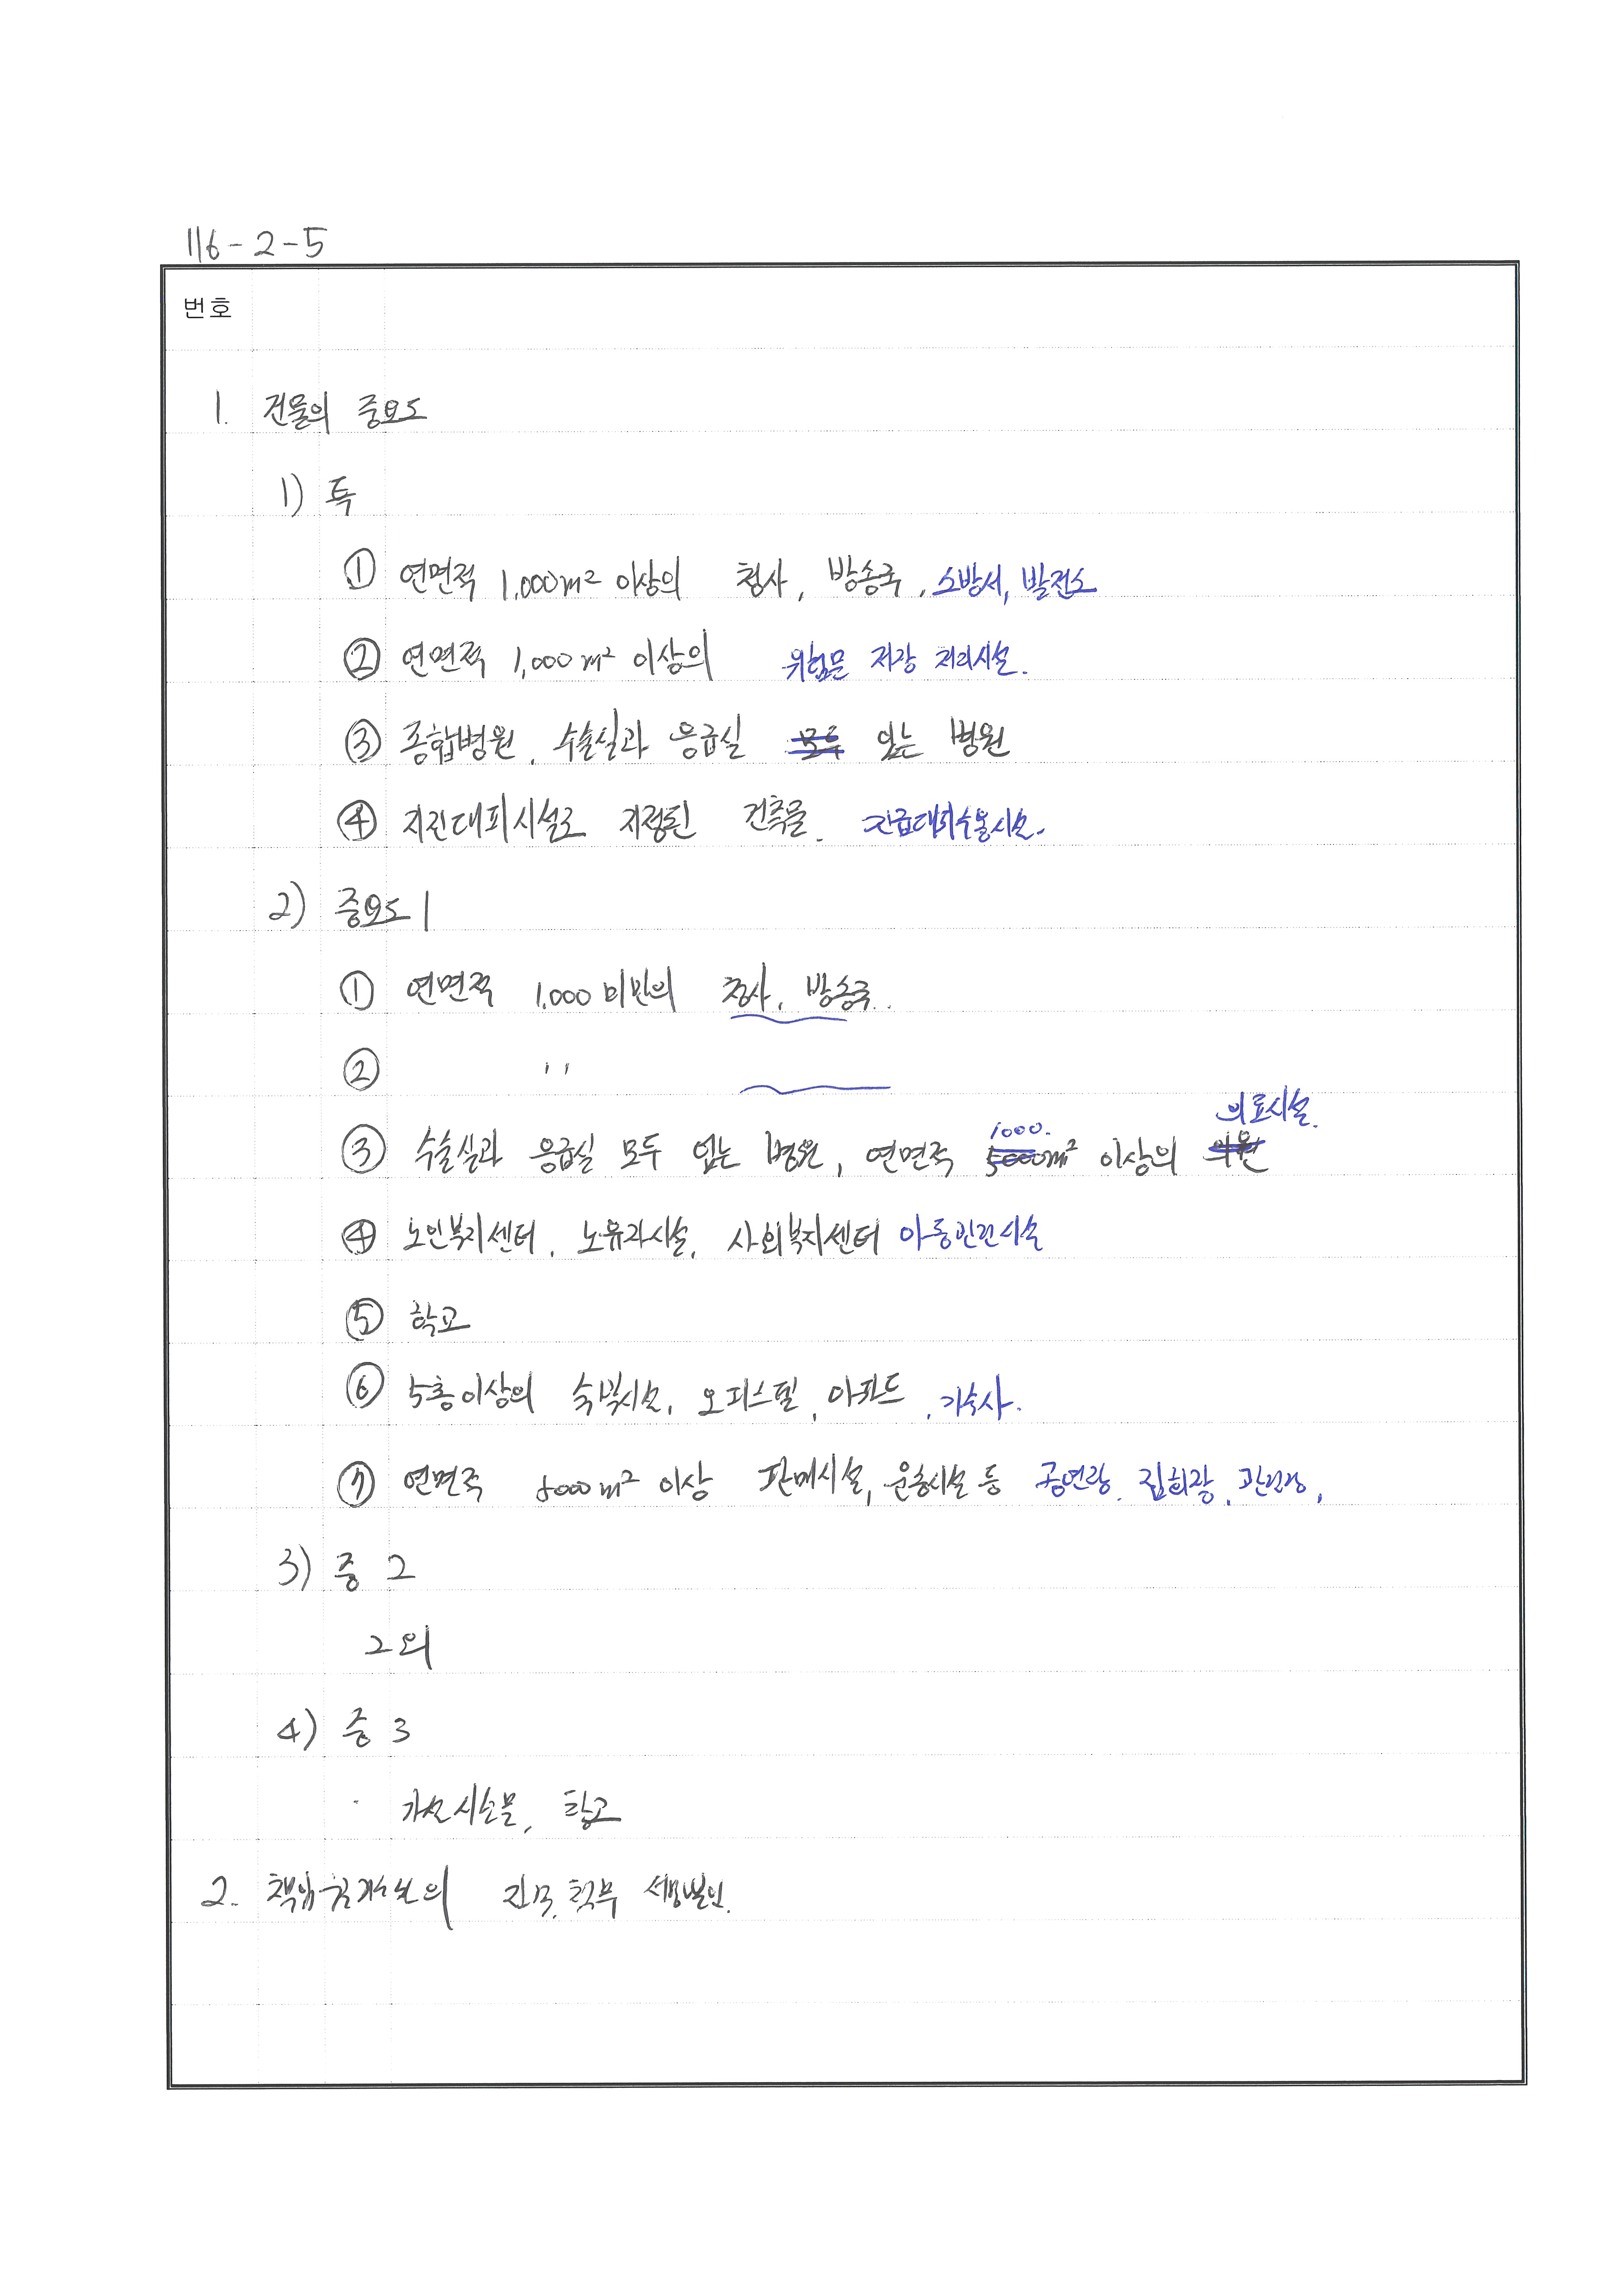 116-2-5
번호
1. 건물의 중요도
1) 특
① 연면적 1,000m² 이상의 청사, 방송국, 소방서, 발전소
② 연면적 1,000m² 이상의 위험물 저장 처리시설.
③ 종합병원, 수술실과 응급실 모두 있는 병원
④ 지진대피시설로 지정된 건축물. 긴급대피수용시설.
2) 중요도 1
① 연면적 1,000 미만의 청사, 방송국..
② 〃
의료시설.
1000.
③ 수술실과 응급실 모두 없는 병원, 연면적 5000m² 이상의 의원
④ 노인복지센터, 노유자시설, 사회복지센터 아동관련시설
⑤ 학교
⑥ 5층이상의 숙박시설, 오피스텔, 아파트, 기숙사.
⑦ 연면적 5000m² 이상 판매시설, 운동시설 등 공연장, 집회장, 관람장,
3) 중 2
그외
4) 중 3
· 가설시설물,
2. 책임구조기술자의